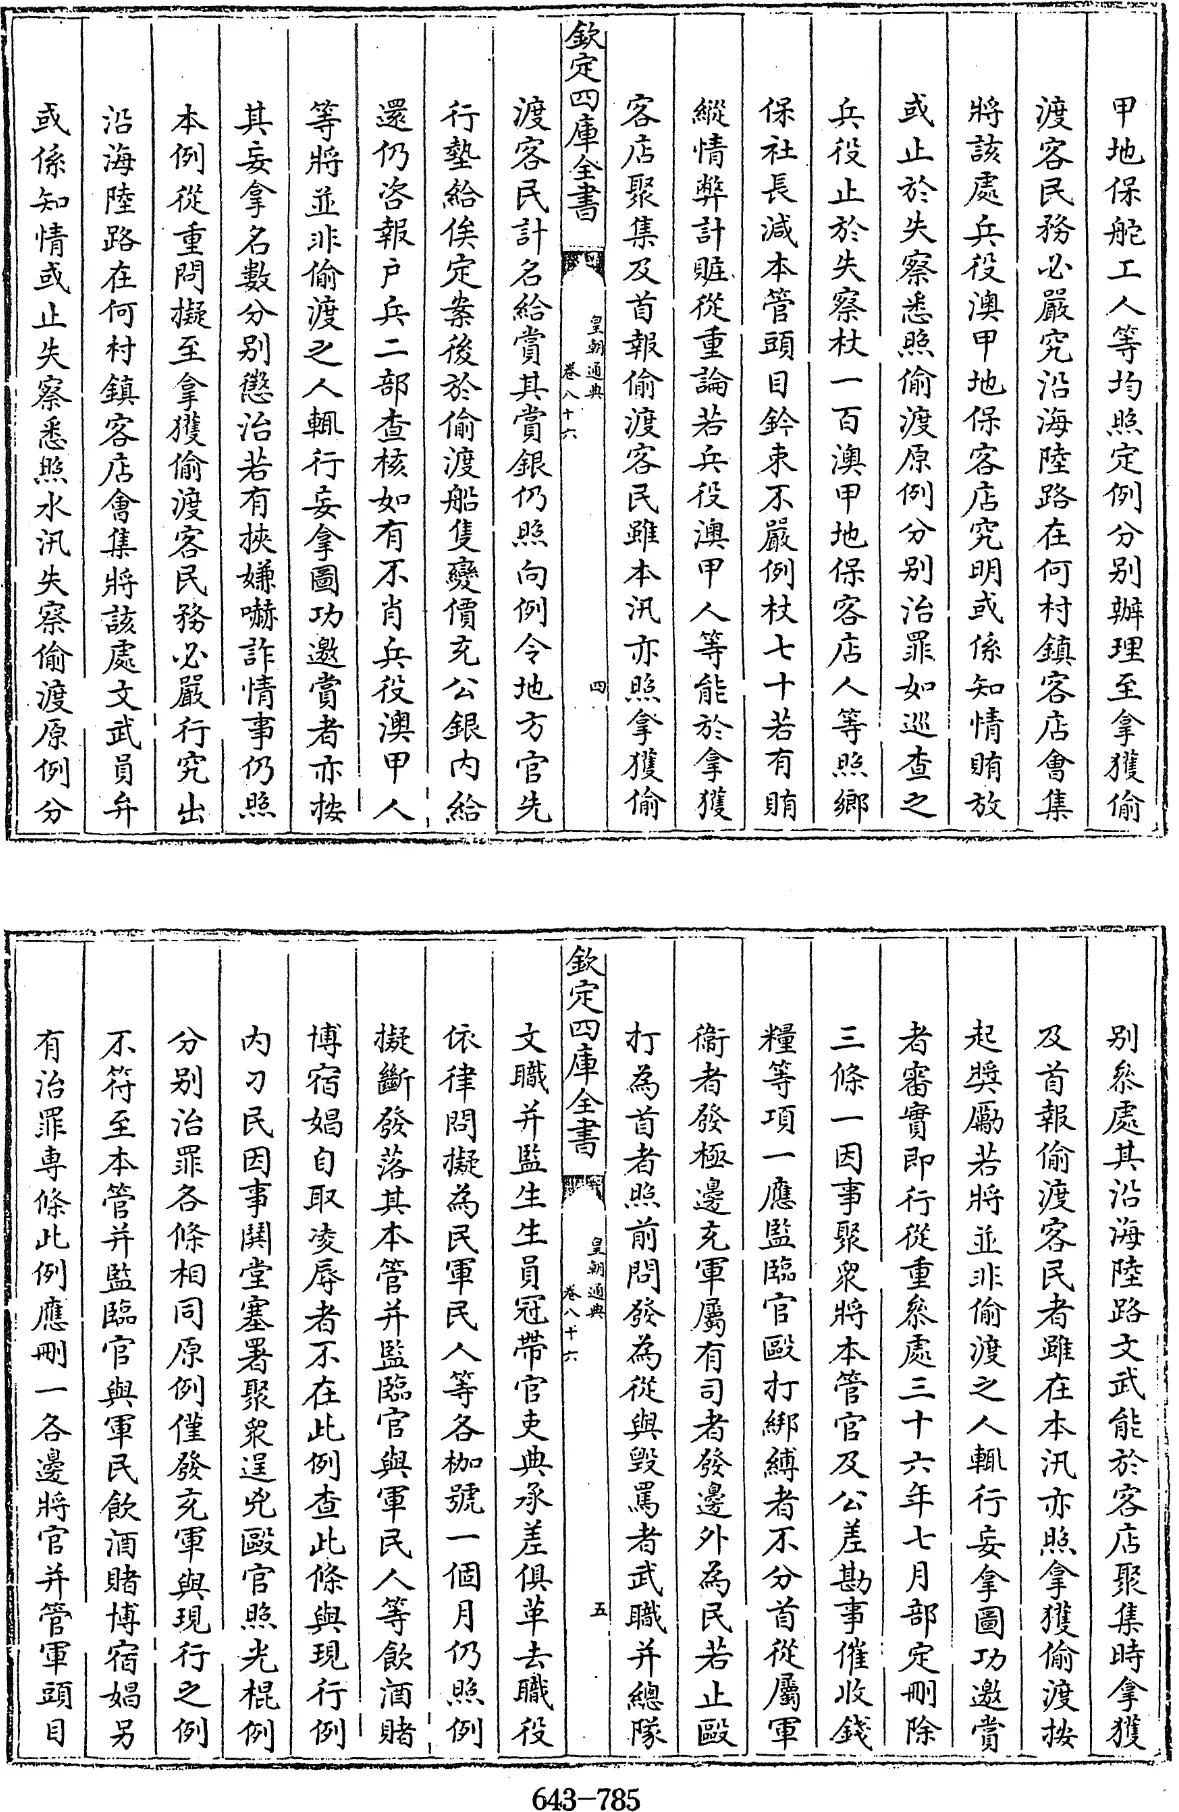 甲地保舵工人等均照定例分别辦理至拿獲偷
渡客民務必嚴究沿海陸路在何村鎮客店會集
將該處兵役澳甲地保客店究明或係知情賄放
或止於失察悉照偷渡原例分别治罪如巡查之
兵役止於失察杖一百澳甲地保客店人等照鄉
保社長減本管頭目鈐束不嚴例杖七十若有賄
縱情弊計賍從重論若兵役澳甲人等能於拿獲
客店聚集及首報偷渡客民雖本汛亦照拿獲偷
欽定四庫全書
皇朝通典
卷八十六
四
渡客民計名給賞其賞銀仍照向例令地方官先
行墊給俟定案後於偷渡船隻變價充公銀内給
還仍咨報户兵二部查核如有不肖兵役澳甲人
等將並非偷渡之人輒行妄拿圖功邀賞者亦按
其妄拿名數分别懲治若有挾嫌嚇詐情事仍照
本例從重問擬至拿獲偷渡客民務必嚴行究出
沿海陸路在何村鎮客店會集將該處文武員弁
或係知情或止失察悉照水汛失察偷渡原例分
别叅處其沿海陸路文武能於客店聚集時拿獲
及首報偷渡客民者雖在本汛亦照拿獲偷渡按
起奬勵若將並非偷渡之人輒行妄拿圖功邀賞
者審實即行從重叅處三十六年七月部定刪除
三條一因事聚衆將本管官及公差勘事催收錢
糧等項一應監臨官毆打綁縛者不分首從屬軍
衞者發極邊充軍屬有司者發邊外為民若止毆
打為首者照前問發為從與毁罵者武職并總隊
欽定四庫全書
皇朝通典
卷八十六
五
文職并監生生員冠帶官吏典承差俱革去職役
依律問擬為民軍民人等各枷號一個月仍照例
擬斷發落其本管并監臨官與軍民人等飲酒賭
博宿娼自取凌辱者不在此例查此條與現行例
内刁民因事鬨堂塞署聚衆逞兇毆官照光棍例
分别治罪各條相同原例僅發充軍與現行之例
不符至本管并監臨官與軍民飲酒賭博宿娼另
有治罪專條此例應刪一各邊將官并管軍頭目
643-785